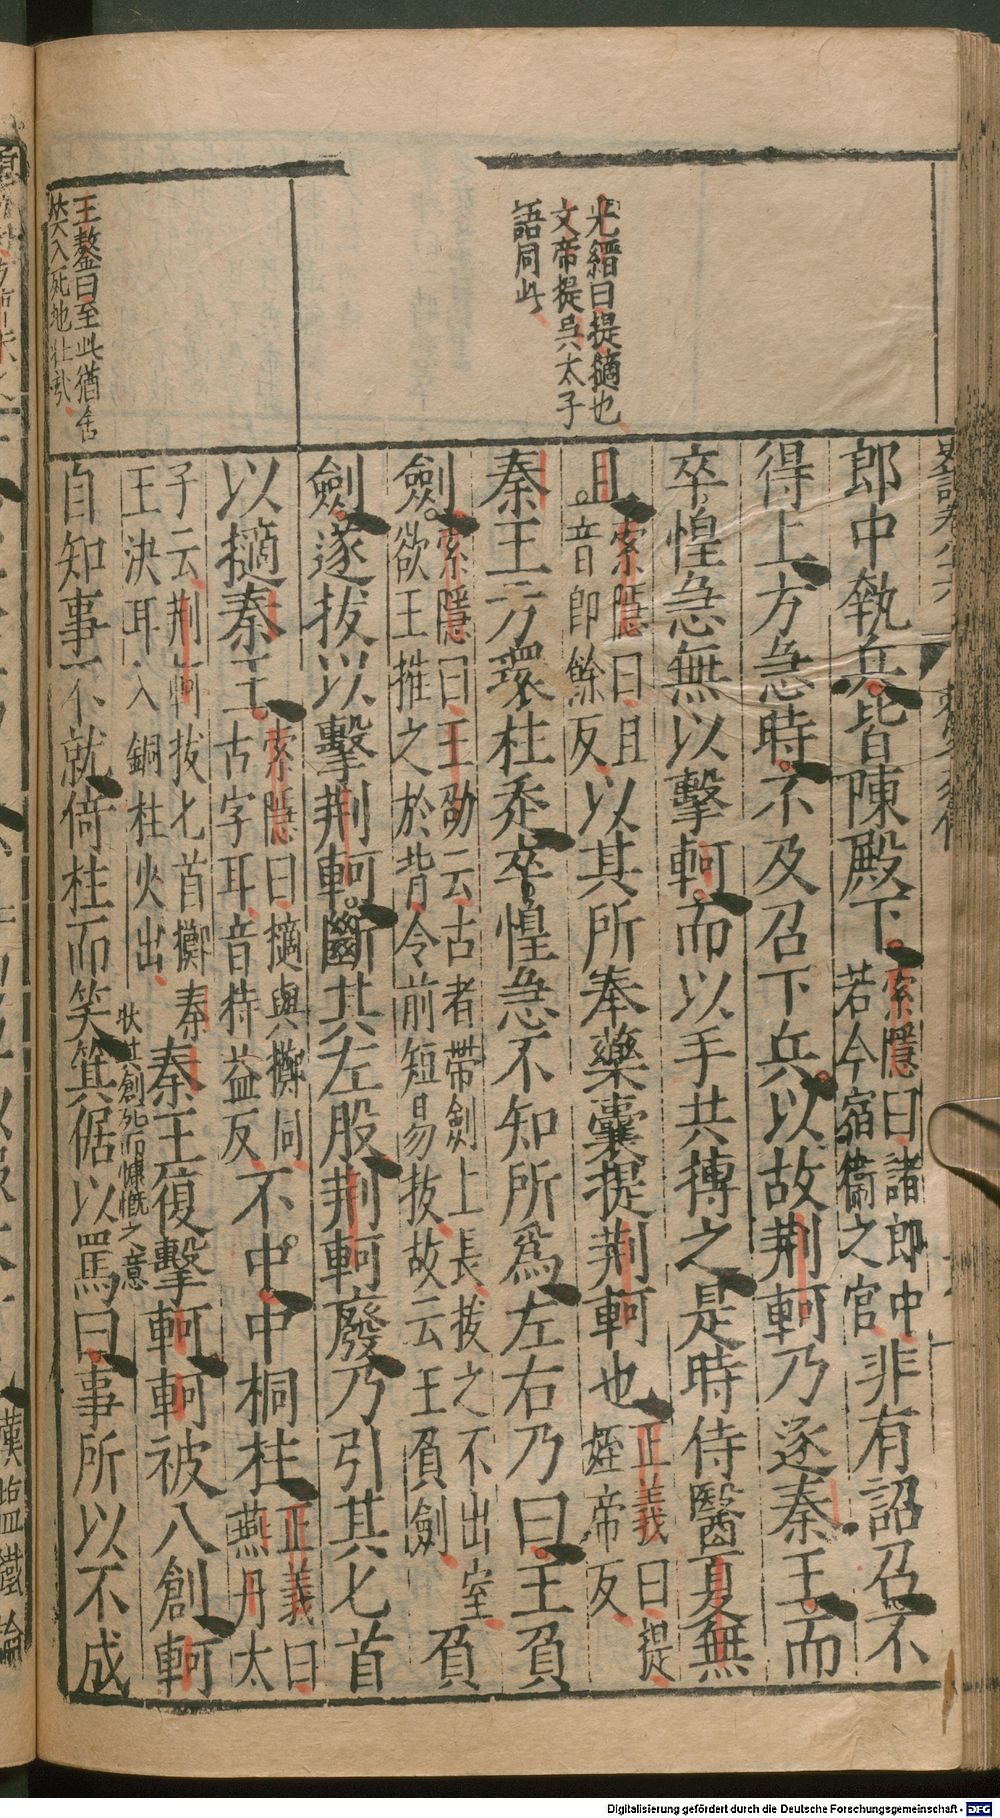 光縉曰提擿也
文帝提吳太子
語同此
王鏊曰至此猶含
笑入死地壯哉
史記卷八十六
郎中執兵皆陳殿下索隱曰諸郎中若今宿衞之官非有詔召不
得上方急時不及召下兵以故荆軻乃逐秦王而
卒惶急無以擊軻而以手共搏之是時侍醫夏無
且索隱曰且音即餘反以其所奉藥囊提荆軻也正義曰提姪帝反
秦王方環柱走卒惶急不知所爲左右乃曰王負
劍索隱曰王劭云古者帶劍上長拔之不出室欲王推之於背令前短易拔故云王負劍負
劍遂拔以擊荆軻斷其左股荆軻廢乃引其匕首
以擿秦王索隱曰擿與擲同古字耳音持益反不中中桐柱正義曰燕丹太
子云荆軻拔匕首擲秦王決耳入銅柱火出秦王復擊軻軻被八創軻
狀其創死而慷慨之意
自知事不就倚柱而笑箕倨以罵曰事所以不成
漢鹽鐵論
Digitalisierung gefördert durch die Deutsche Forschungsgemeinschaft - DFG